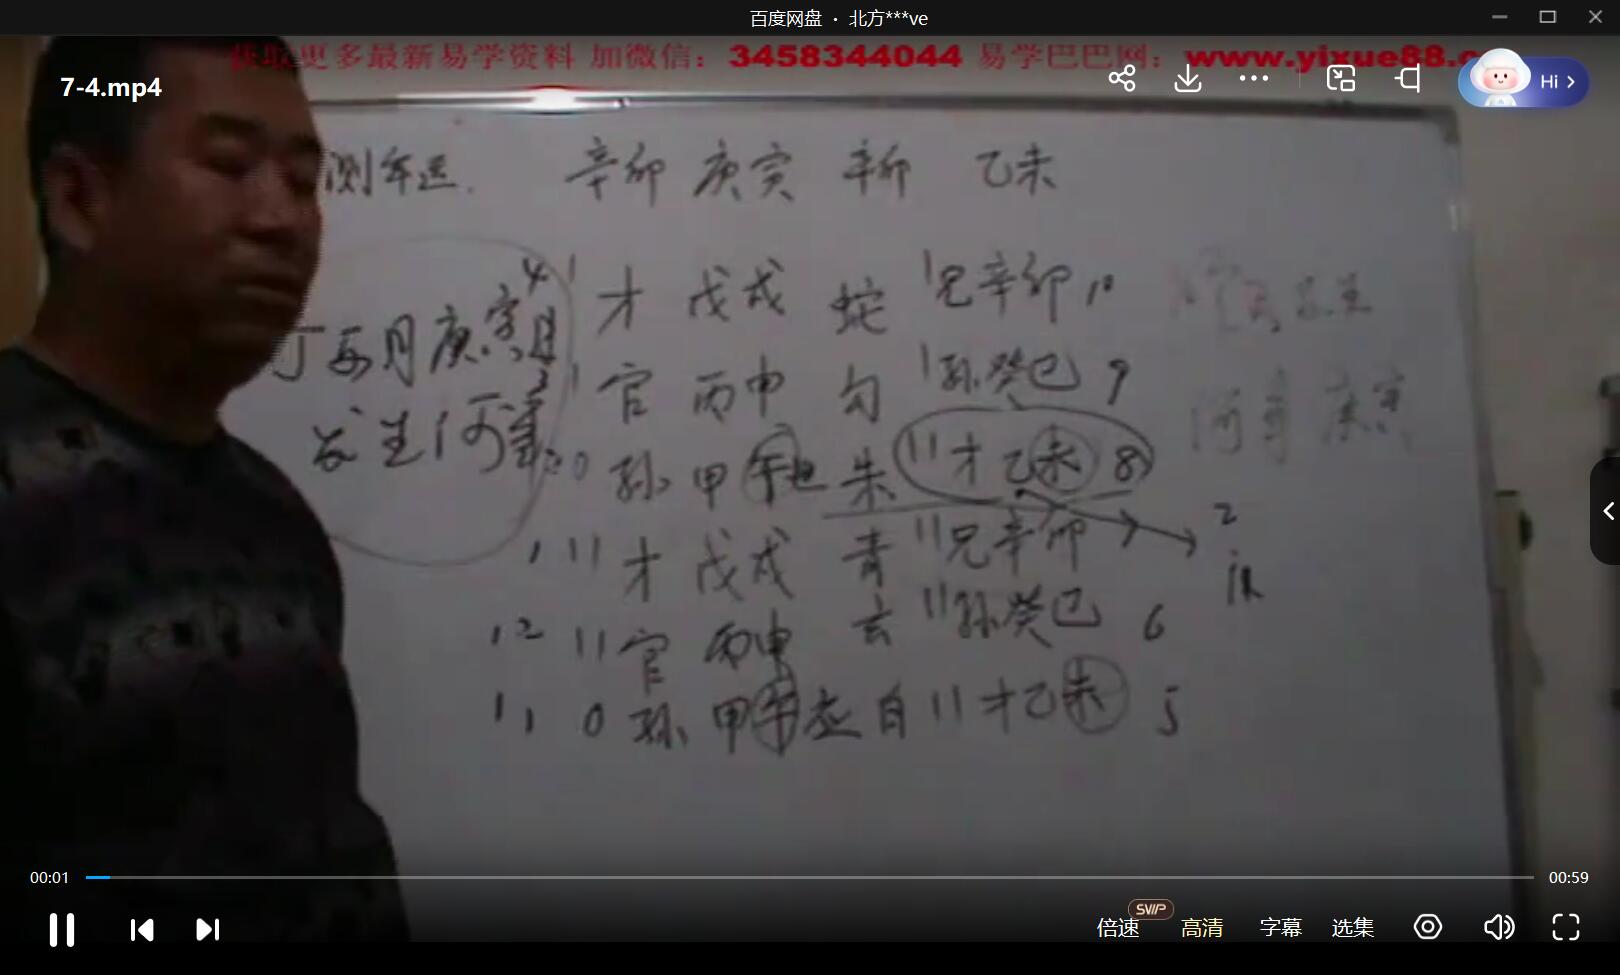 百度网盘 · 北方***ve
获取更多最新易学资料 加微信：3458344044 易学巴巴网：www.yixue88.c
7-4.mp4
Hi
测年运. 辛卯 庚寅 辛卯 乙未
4 才 戊戌 蛇 兄辛卯 10
月庚寅月
官 丙申 勾 孙癸巳 9
发生何事
孙 甲午世 朱 才乙未 8
才 戊戌 青 兄辛卯
2
12 官 丙申 玄 孙癸巳 6
11 孙 甲午应 白 才乙未 5
何事 庚寅
00:01
00:59
SVIP
倍速 高清 字幕 选集